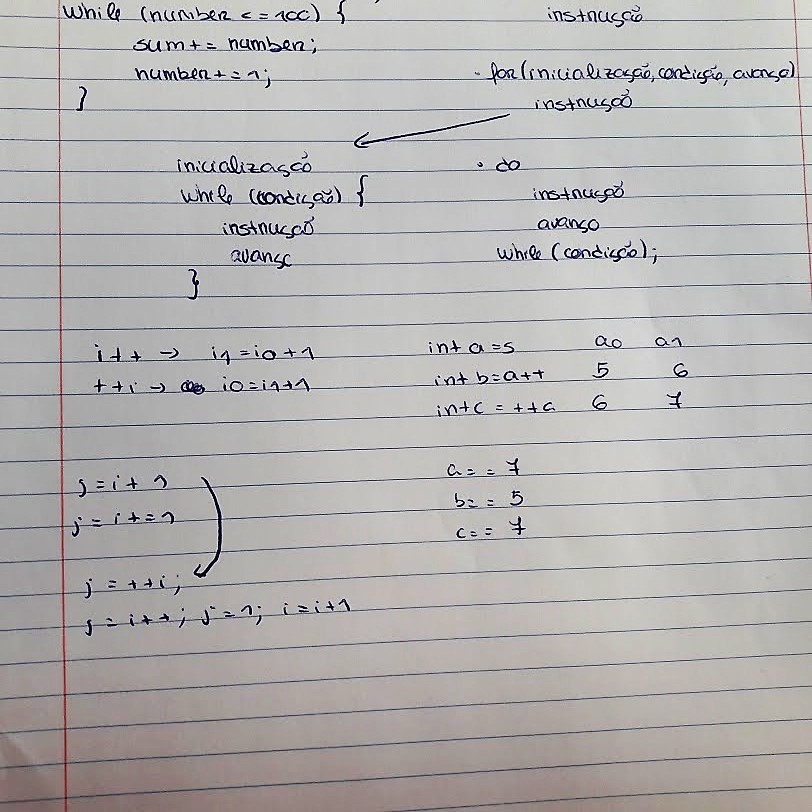 while (number <= 100) {
sum += number;
number += 1;
}
instrução
• for (inicialização, condição, avanço)
instrução
inicialização
while (condição) {
instrução
avanço
}
• do
instrução
avanço
while (condição);
i++ → i1 = i0 + 1
++i → i0 = i1 + 1
int a = 5 a0 a1
int b = a++ 5 6
int c = ++a 6 7
j = i + 1
j = i += 1
j = ++i;
j = i++; j = 1; i = i + 1
a == 7
b == 5
c == 7